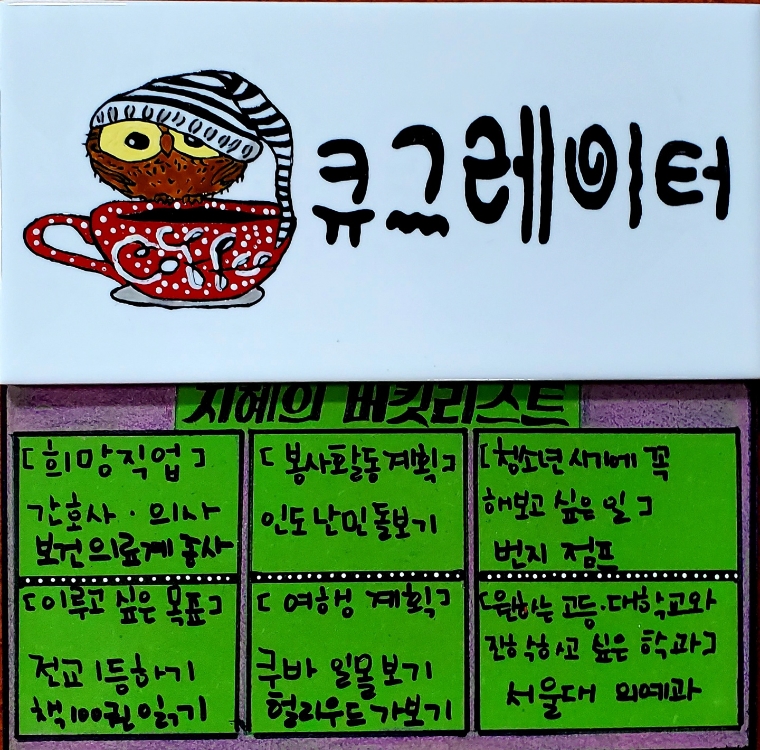 큐그레이터
Coffee
지혜의 버킷리스트
[희망직업]
간호사 · 의사
보건의료계 종사
[봉사활동계획]
인도 난민 돌보기
[청소년 시기에 꼭
해보고 싶은 일]
번지 점프
[이루고 싶은 목표]
전교 1등하기
책 100권 읽기
[여행 계획]
쿠바 일몰보기
헐리우드 가보기
[원하는 고등·대학교와
진학하고 싶은 학과]
서울대 의예과